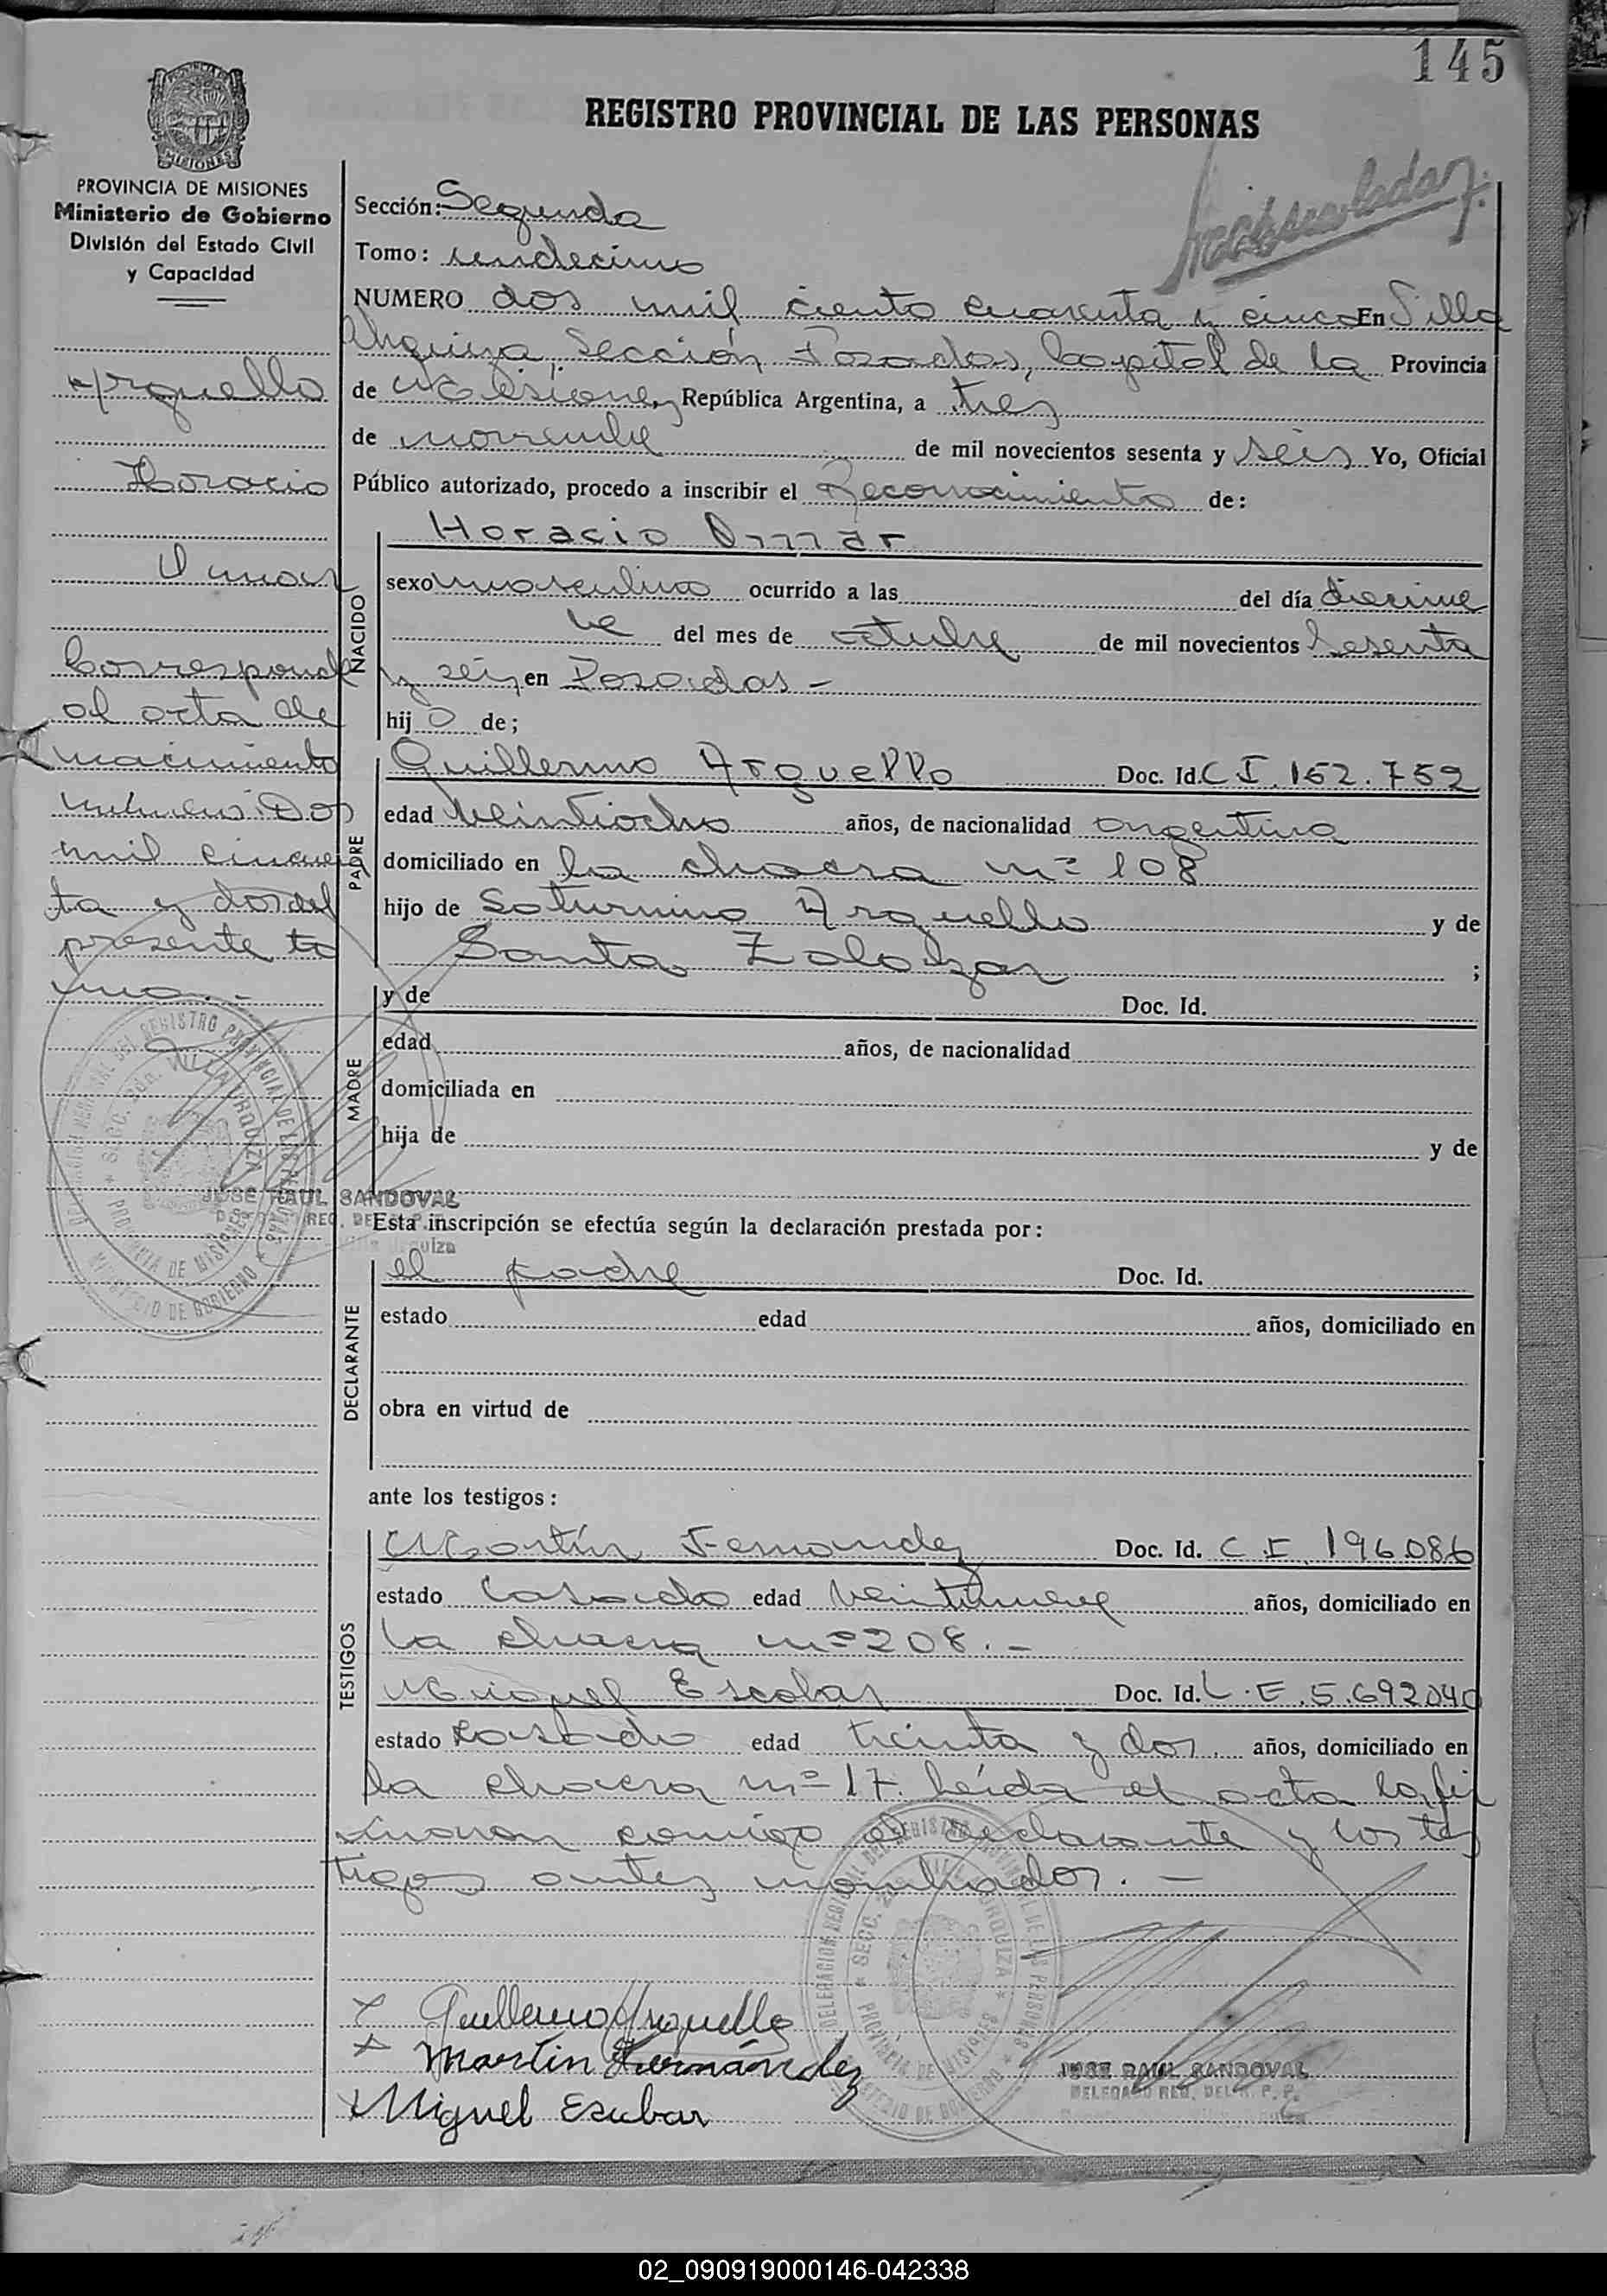 145
REGISTRO PROVINCIAL DE LAS PERSONAS
PROVINCIA DE MISIONES
Ministerio de Gobierno
División del Estado Civil
y Capacidad
Arguello
Horacio
Omar
Corresponde
al acta de
nacimiento
número Dos
mil cincuen
ta y dos del
presente to
mo.-
JOSE RAUL SANDOVAL
Sección: Segunda
Tomo: undecimo
NUMERO dos mil ciento cuarenta y cinco En Villa
Urquiza Sección Posadas, Capital de la Provincia
de Misiones, República Argentina, a tres
de noviembre de mil novecientos sesenta y seis Yo, Oficial
Público autorizado, procedo a inscribir el Reconocimiento de:
NACIDO
Horacio Omar
sexo masculino ocurrido a las del día diecinue
ve del mes de octubre de mil novecientos sesenta
y seis, en Posadas -
hijo de;
PADRE
Guillermo Arguello Doc. Id. C I. 152.752
edad veintiocho años, de nacionalidad argentina
domiciliado en la chacra nº 108
hijo de Saturnino Arguello y de
Santa Zalazar ;
MADRE
y de Doc. Id.
edad años, de nacionalidad
domiciliada en
hija de y de
Esta inscripción se efectúa según la declaración prestada por:
DECLARANTE
el padre Doc. Id.
estado edad años, domiciliado en
obra en virtud de
ante los testigos:
TESTIGOS
Martín Fernandez Doc. Id. C I. 196.086
estado Casado edad veintinueve años, domiciliado en
la chacra nº 208.-
Miguel Escobar Doc. Id. L.E. 5.692.040
estado casado edad treinta y dos años, domiciliado en
la chacra nº 17. Leída el acta la fir
maron conmigo el declarante y los tes
tigos antes nombrados. -
Guillermo Arguello
Martin Fernández
Miguel Escobar
JOSE RAUL SANDOVAL
DELEGADO REG. DEL R. P. P.
02_090919000146-042338